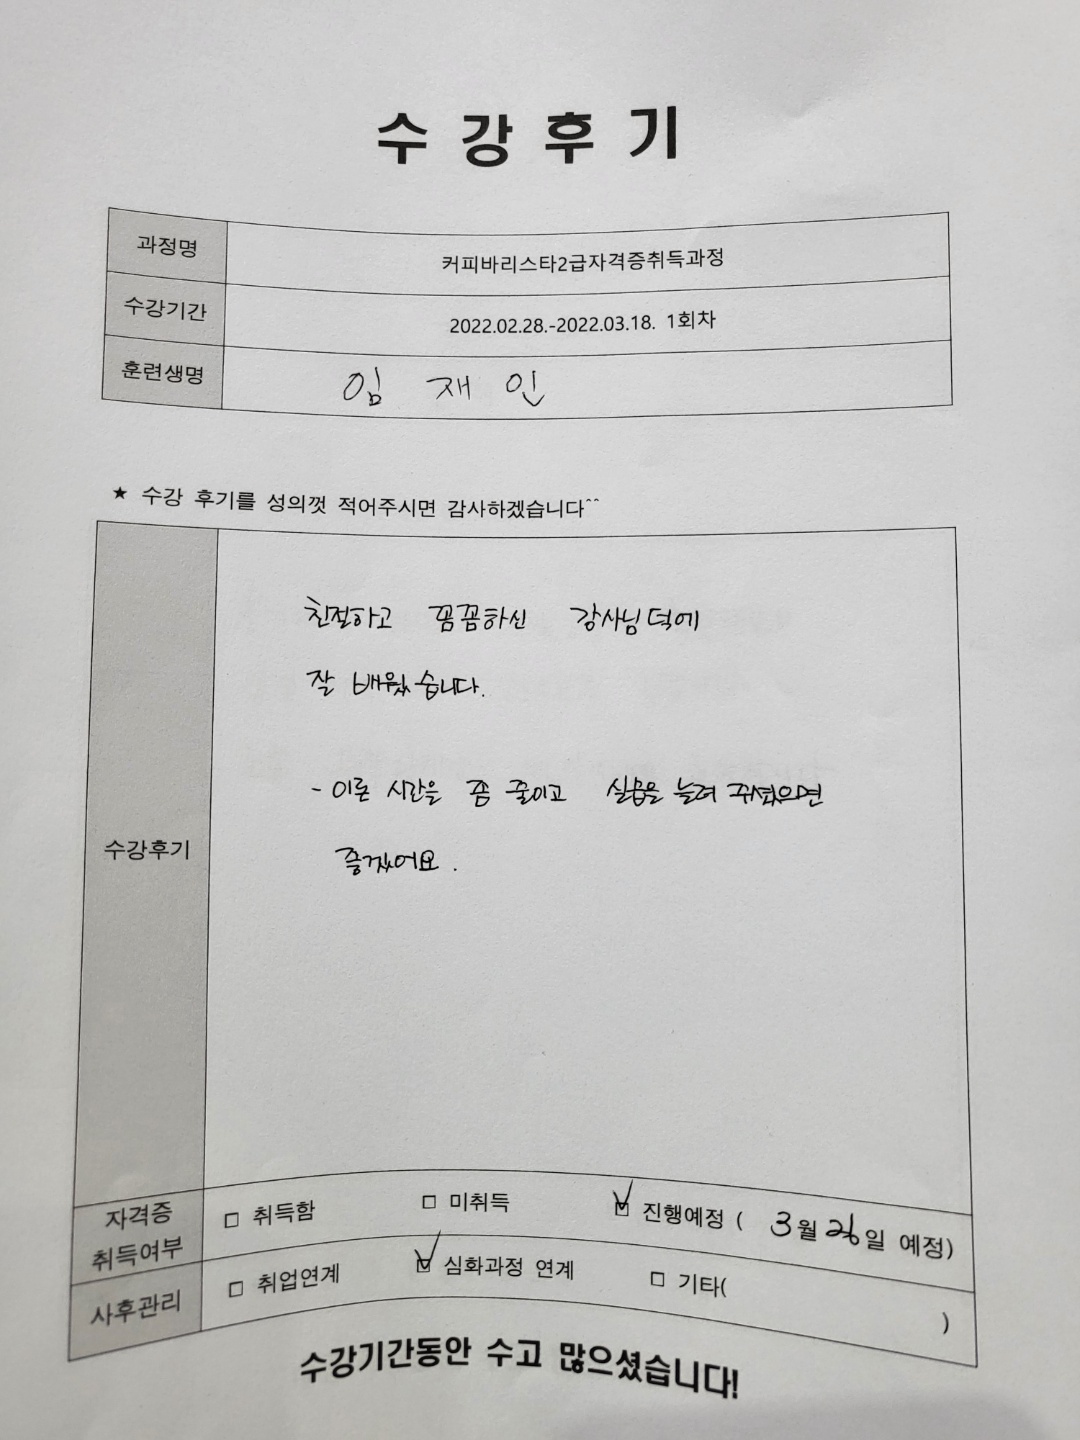 수강후기
과정명 커피바리스타2급자격증취득과정
수강기간 2022.02.28.-2022.03.18. 1회차
훈련생명 임 재 인
★ 수강 후기를 성의껏 적어주시면 감사하겠습니다^^
친절하고 꼼꼼하신 강사님 덕에
잘 배웠습니다.
- 이론 시간을 좀 줄이고 실습을 늘려 주셨으면
수강후기
좋겠어요.
자격증 취득여부 □ 취득함 □ 미취득 ☑ 진행예정 ( 3월 26일 예정)
사후관리 □ 취업연계 ☑ 심화과정 연계 □ 기타( )
수강기간동안 수고 많으셨습니다!